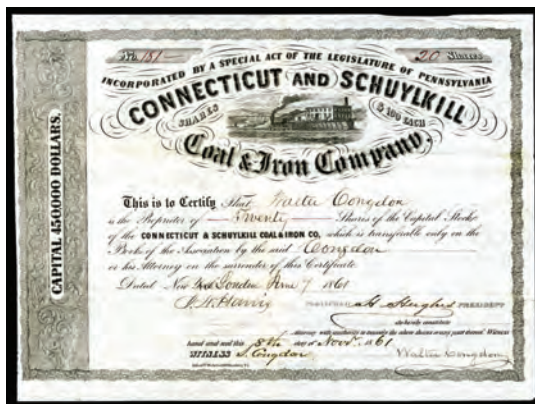 No. 151
20 Shares
INCORPORATED BY A SPECIAL ACT OF THE LEGISLATURE OF PENNSYLVANIA
CONNECTICUT AND SCHUYLKILL
SHARES $100 EACH
Coal & Iron Company.
CAPITAL 450,000 DOLLARS.
This is to Certify That Walter Congdon
is the Proprietor of Twenty Shares of the Capital Stock
of the CONNECTICUT & SCHUYLKILL COAL & IRON CO. which is transferable only on the
Books of the Association by the said Congdon
or his Attorney on the surrender of this Certificate
Dated New London June 7 1861
Harris
H. Hughes PRESIDENT
do hereby constitute
Attorney with authority to transfer the above shares or any part thereof. Witness
hand and seal this 8th day of Novr. 1861
WITNESS S. Congdon
Walter Congdon